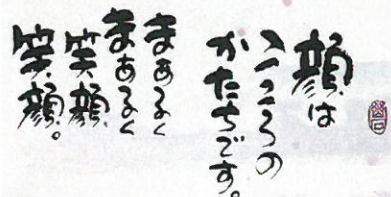 顔は
こころの
かたちです。
まあるく
まあるく
笑顔
笑顔。